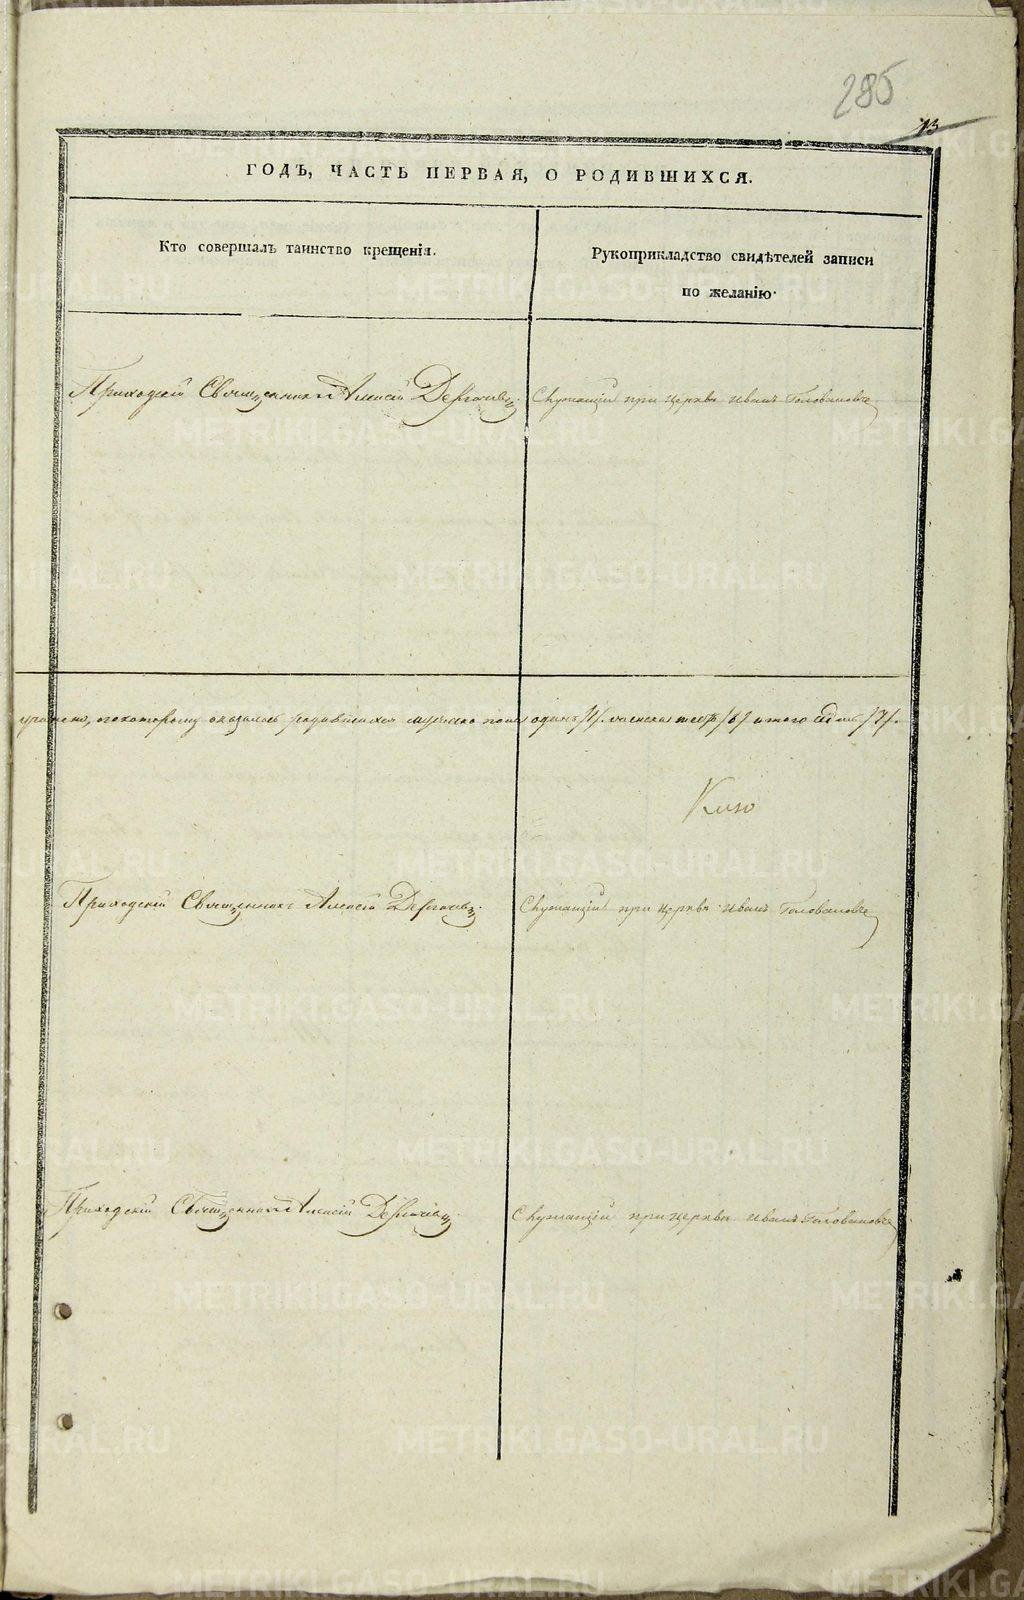 285
13
ГОДЪ, ЧАСТЬ ПЕРВАЯ, О РОДИВШИХСЯ.
Кто совершалъ таинство крещенія.
Рукоприкладство свидѣтелей записи
по желанію.
Приходскій Священникъ Алексій Дерг
Служащій при церкви Иванъ Головановъ
по которому оказалось родившихся мужеска пола одинъ /1/ женска шесть /6/ итого седмь /7/.
Приходскій Священникъ Алексій
Служащій при церкви Иванъ Головановъ
Приходскій Священникъ Алексій
Служащій при церкви Иванъ Головановъ
METRIKI.GASO-URAL.RU